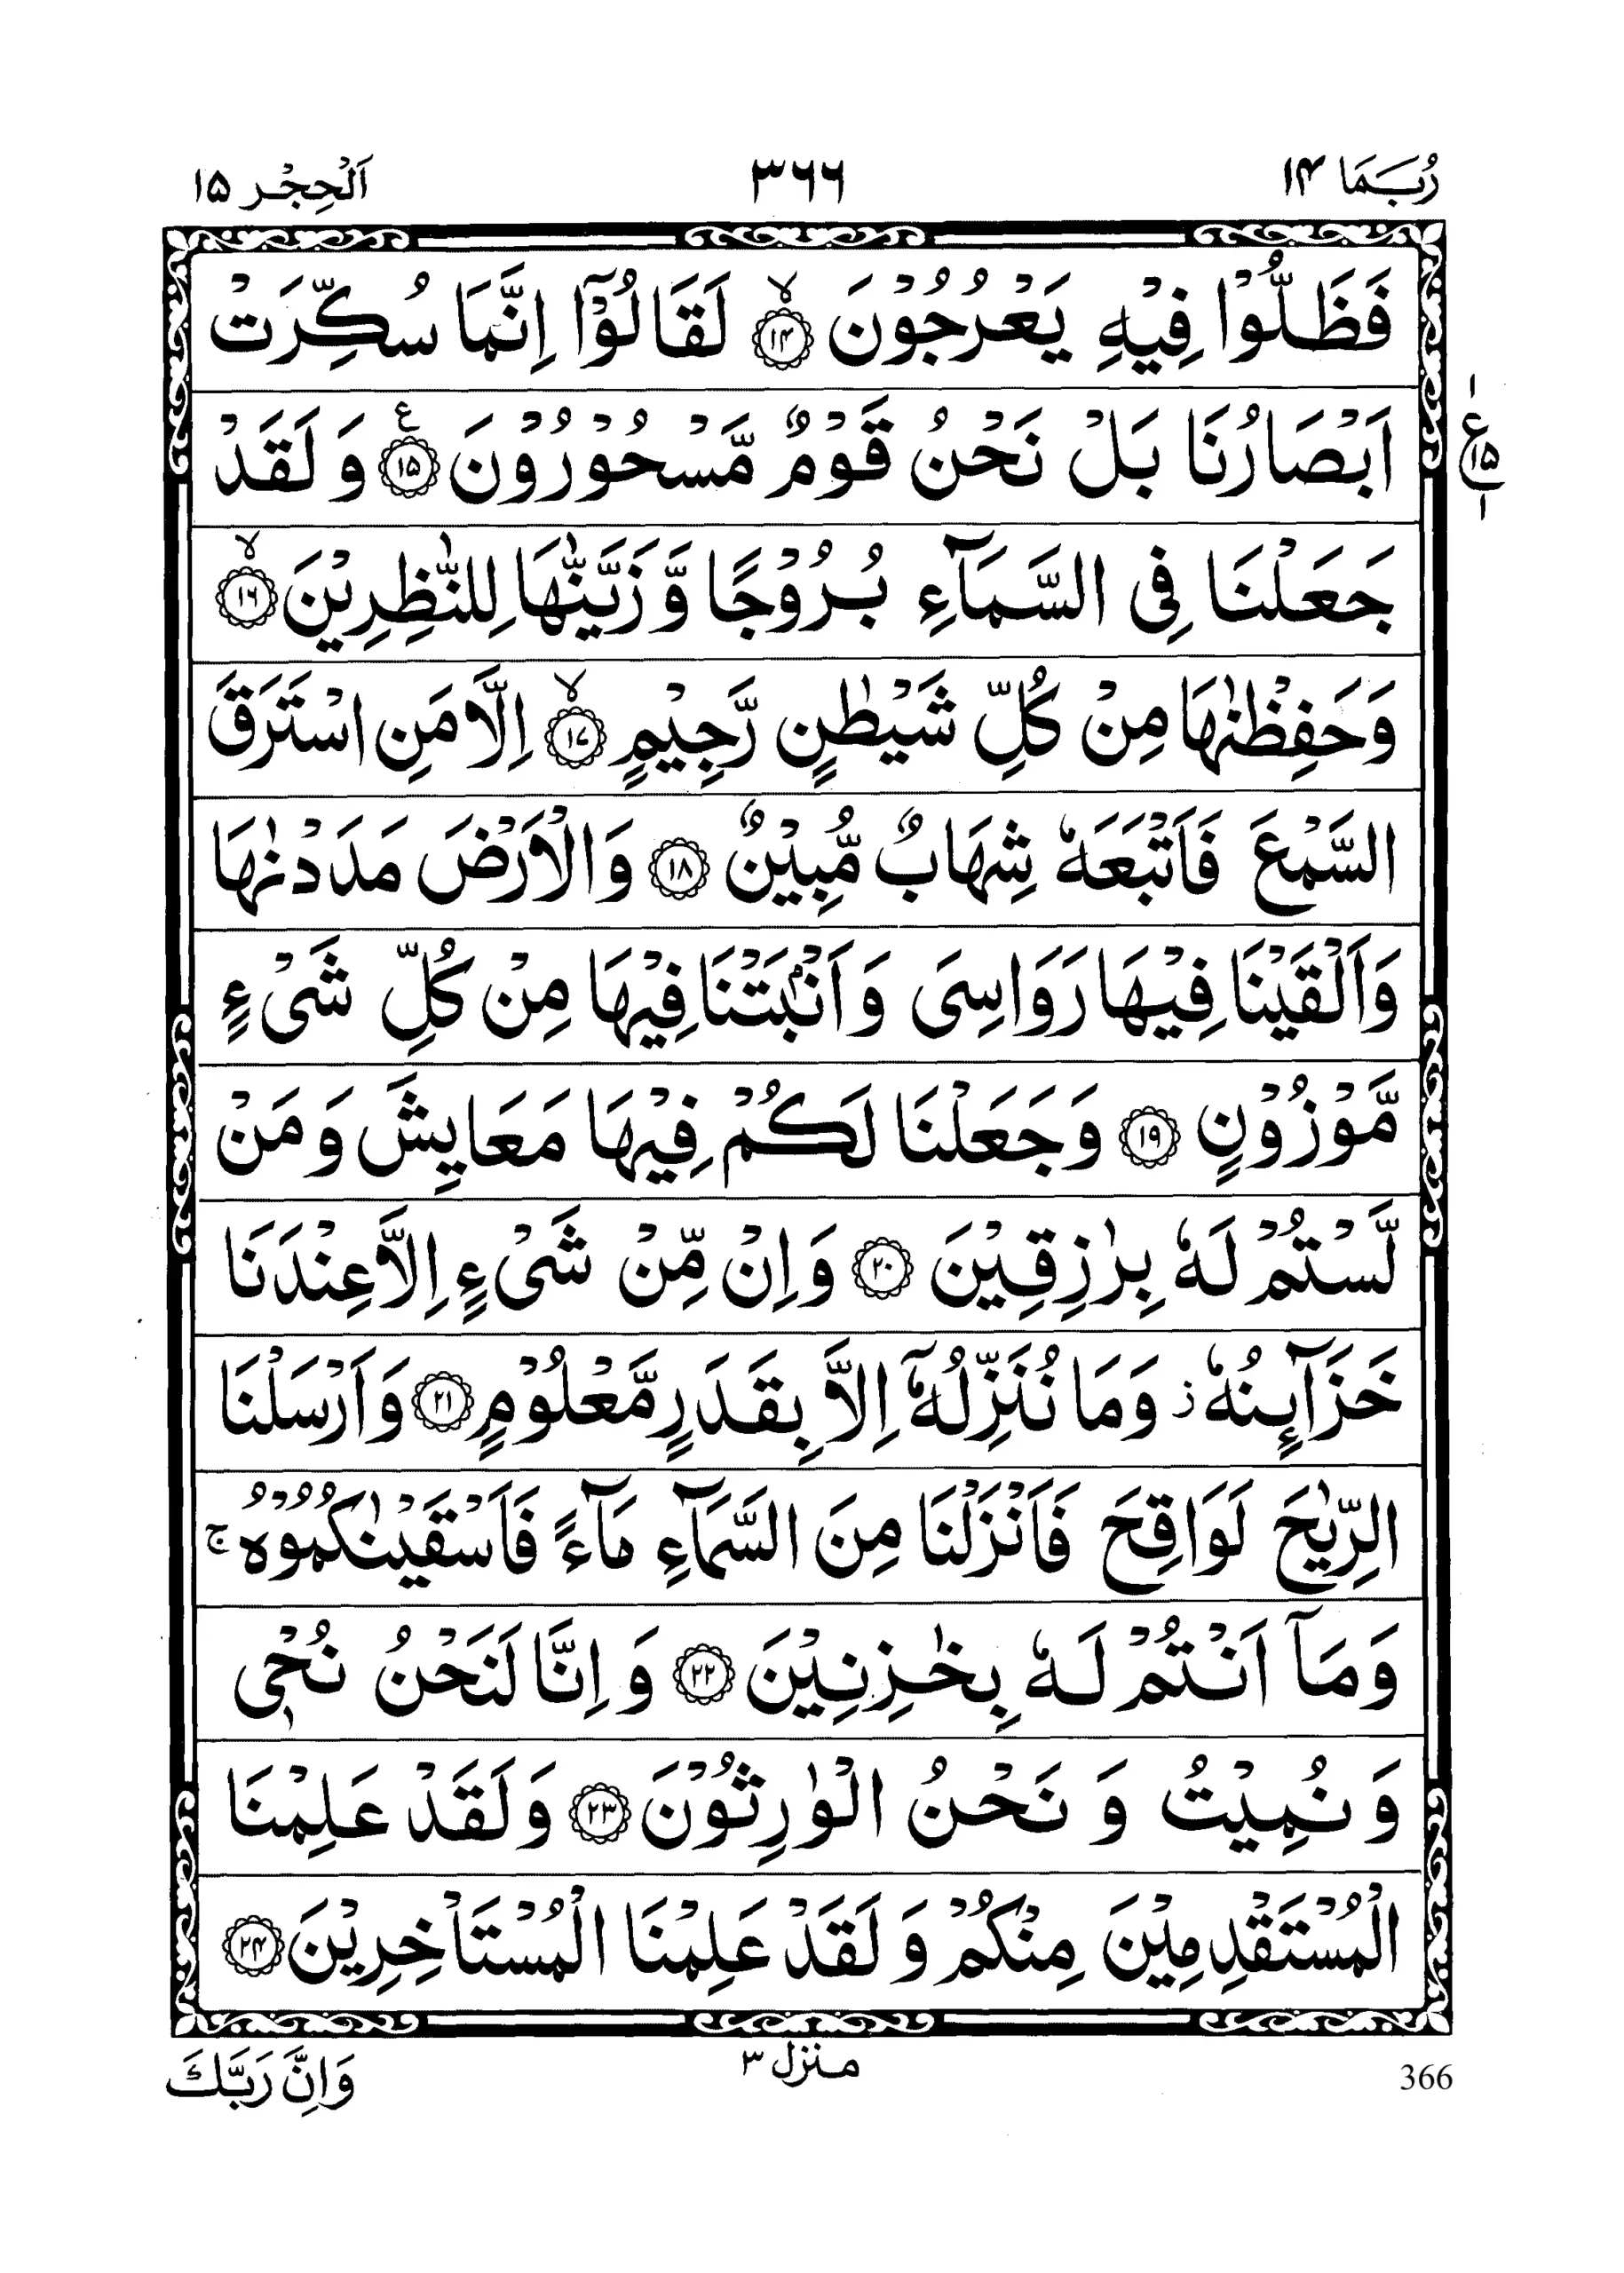 رُبَمَا ۱۴ ۳۶۶ اَلْحِجْر ۱۵
فَظَلُّوْا فِيْهِ يَعْرُجُوْنَ ۙ﴿۱۴﴾ لَقَالُوْۤا اِنَّمَا سُكِّرَتْ
اَبْصَارُنَا بَلْ نَحْنُ قَوْمٌ مَّسْحُوْرُوْنَ ﴿۱۵﴾ ع وَ لَقَدْ
ع ۱۵ ۱ ۱
جَعَلْنَا فِى السَّمَآءِ بُرُوْجًا وَّ زَيَّنّٰهَا لِلنّٰظِرِيْنَ ۙ﴿۱۶﴾
وَحَفِظْنٰهَا مِنْ كُلِّ شَيْطٰنٍ رَّجِيْمٍ ۙ﴿۱۷﴾ اِلَّا مَنِ اسْتَرَقَ
السَّمْعَ فَاَتْبَعَهٗ شِهَابٌ مُّبِيْنٌ ﴿۱۸﴾ وَالْاَرْضَ مَدَدْنٰهَا
وَاَلْقَيْنَا فِيْهَا رَوَاسِىَ وَ اَنْۢبَتْنَا فِيْهَا مِنْ كُلِّ شَىْءٍ
مَّوْزُوْنٍ ﴿۱۹﴾ وَجَعَلْنَا لَكُمْ فِيْهَا مَعَايِشَ وَ مَنْ
لَّسْتُمْ لَهٗ بِرٰزِقِيْنَ ﴿۲۰﴾ وَاِنْ مِّنْ شَىْءٍ اِلَّا عِنْدَنَا
خَزَآٮِٕنُهٗ ز وَمَا نُنَزِّلُهٗۤ اِلَّا بِقَدَرٍ مَّعْلُوْمٍ ﴿۲۱﴾ وَاَرْسَلْنَا
الرِّيٰحَ لَوَاقِحَ فَاَنْزَلْنَا مِنَ السَّمَآءِ مَآءً فَاَسْقَيْنٰكُمُوْهُ ۚ
وَمَاۤ اَنْتُمْ لَهٗ بِخٰزِنِيْنَ ﴿۲۲﴾ وَ اِنَّا لَنَحْنُ نُحْىٖ
وَ نُمِيْتُ وَ نَحْنُ الْوٰرِثُوْنَ ﴿۲۳﴾ وَلَقَدْ عَلِمْنَا
الْمُسْتَقْدِمِيْنَ مِنْكُمْ وَ لَقَدْ عَلِمْنَا الْمُسْتَاْخِرِيْنَ ﴿۲۴﴾
366 منزل ۳ وَاِنَّ رَبَّكَ